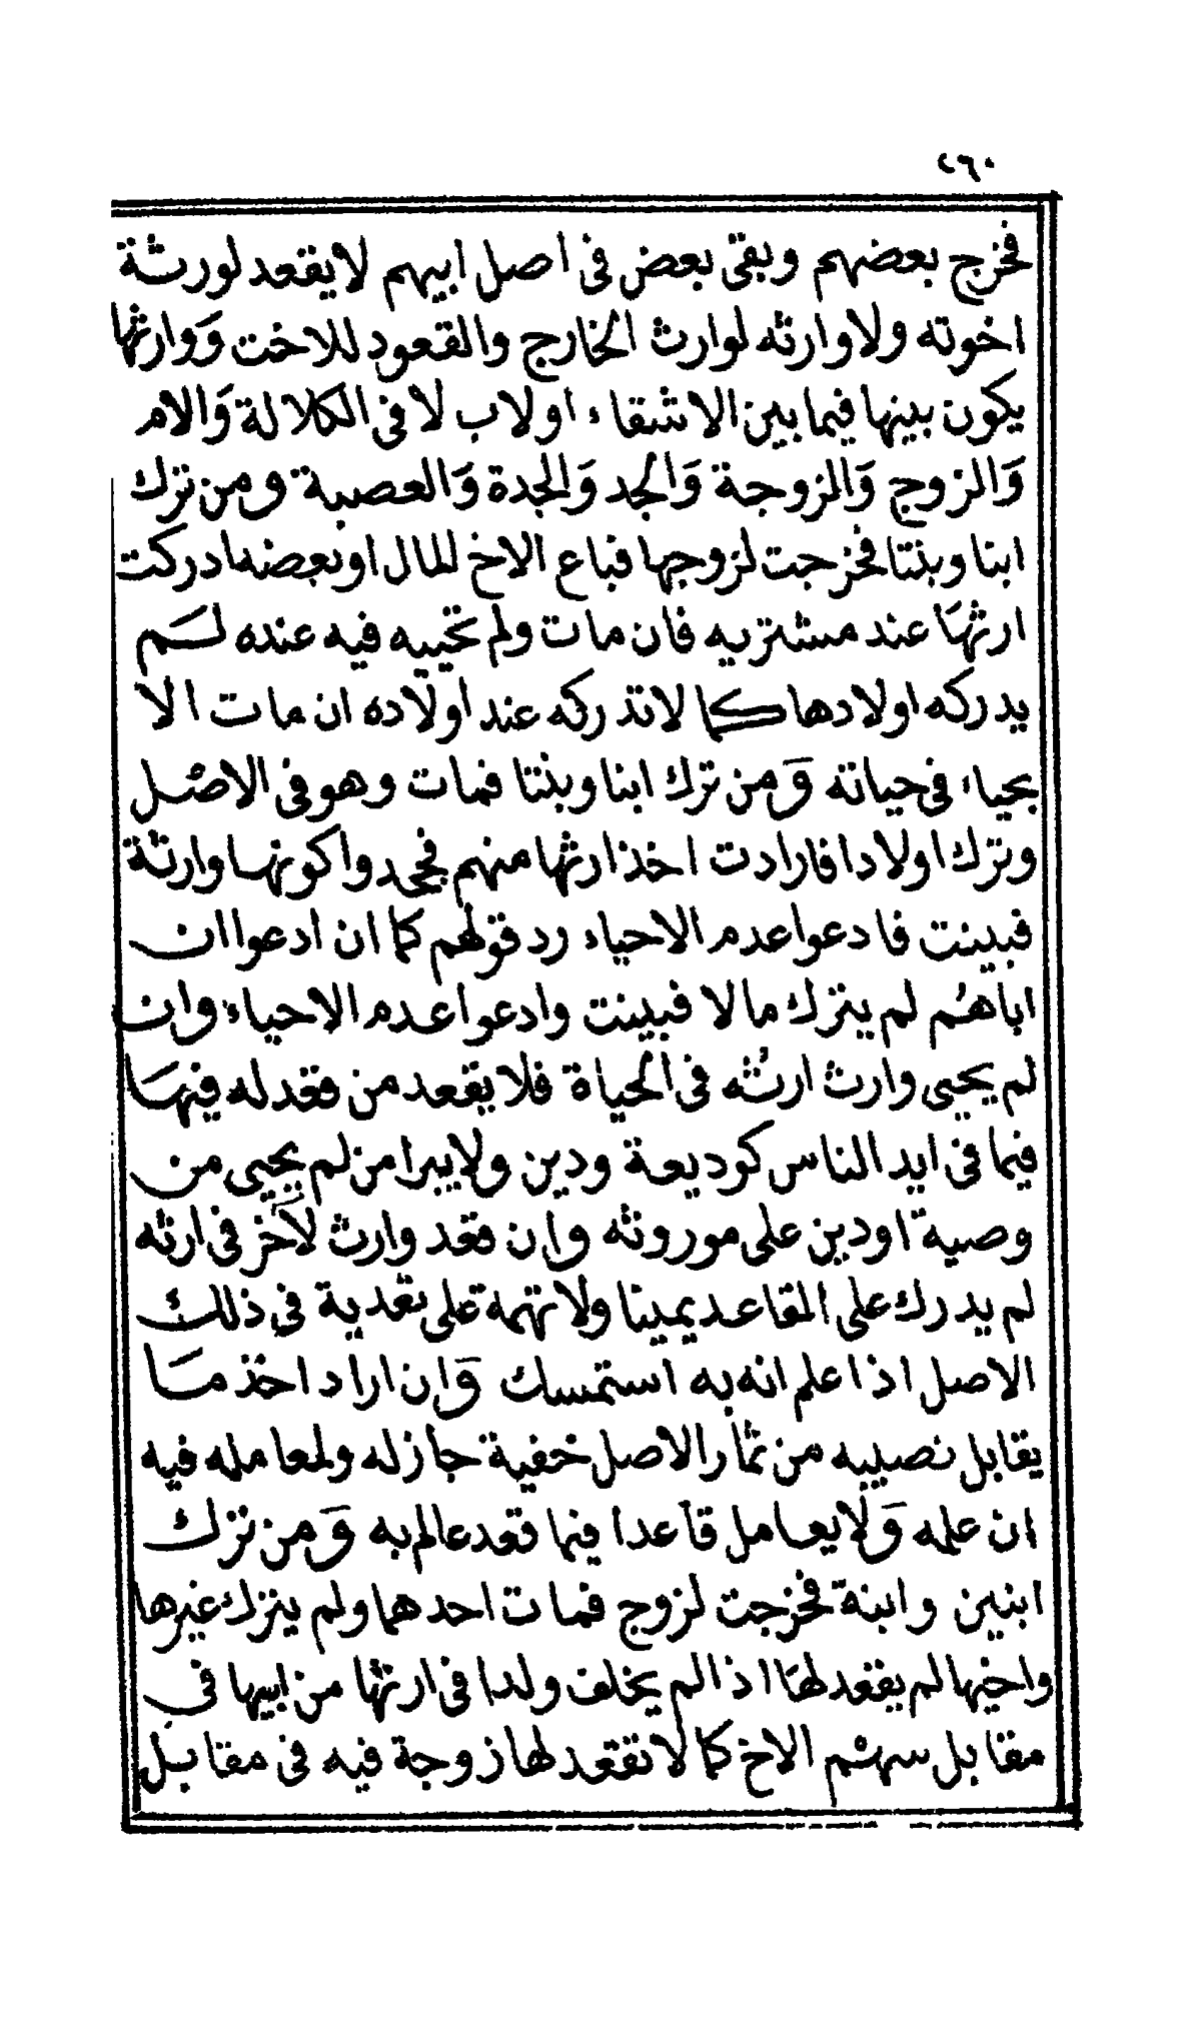 ٢٦٠
فخرج بعضهم وبقى بعض فى اصل ابيهم لا يقعد لورثة
اخوته ولا وارثه لوارث الخارج والقعود للاخت وَوارثها
يكون بينها فيما بين الاشقاء اولاب لا فى الكلالة وَالام
وَالزوج وَالزوجة وَالجد وَالجدة وَالعصبة ومن ترك
ابنا وبنتا فخرجت لزوجها فباع الاخ المال اوبعضه ادركت
ارثهَا عند مشتريه فان مات ولم تحييه فيه عنده لـم
يدركه اولادها كما لا تدركه عند اولاده ان مات الا
بحياء فى حياته وَمن ترك ابنا وبنتا فمات وهو فى الاصل
وترك اولادا فارادت اخذ ارثها منهم فجحدوا كونها وارثة
فبينت فادعوا عدم الاحياء رد قولهم كما ان ادعوا ان
اباهم لم يترك مالا فبينت وادعوا عدم الاحياء وان
لم يحيى وارث ارثه فى الحياة فلا يقعد من قعد له فيهَا
فيما فى ايد الناس كوديعة ودين ولا يبرا من لم يحيى من
وصية اودين على موروثه وان قعد وارث لآخر فى ارثه
لم يدرك على القاعد يمينا ولا تهمة على تعدية فى ذلك
الاصل اذا علم انه به استمسك وَان اراد اخذ مَا
يقابل نصيبه من ثمار الاصل خفية جاز له ولمعامله فيه
ان علمه وَلا يعامل قاعدا فيما قعد عالم به وَمن ترك
ابنين وابنة فخرجت لزوج فمات احدهما ولم يترك غيرها
واخيها لم يقعد لهَا اذا لم يخلف ولدا فى ارثها من ابيها فى
مقابل سهم الاخ كما لا تقعد لها زوجة فيه فى مقابل